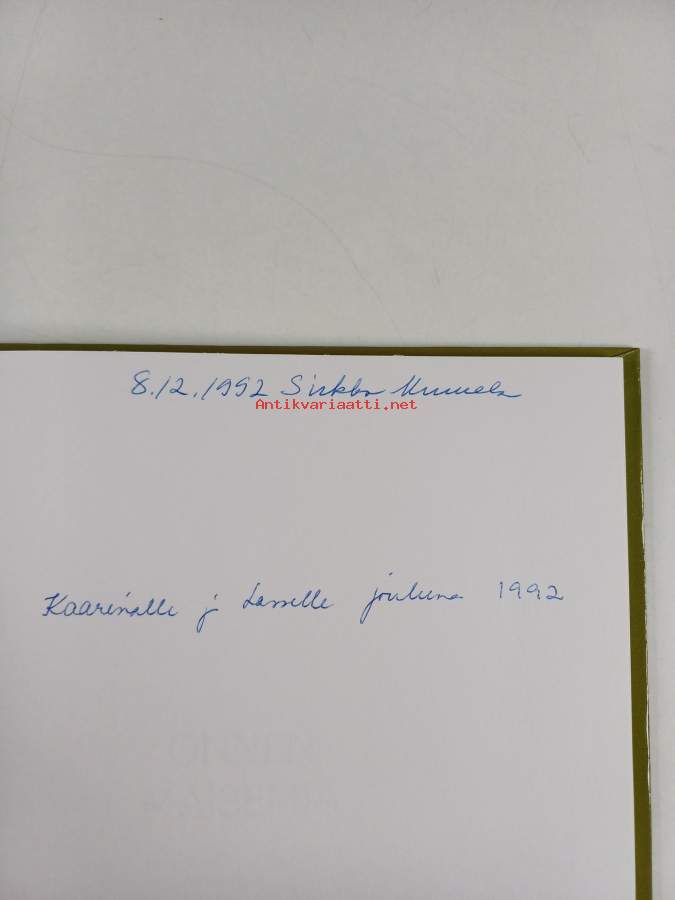 8.12.1992 Sirkka
Antikvariaatti.net
Kaarinalle j Lasselle jouluna 1992